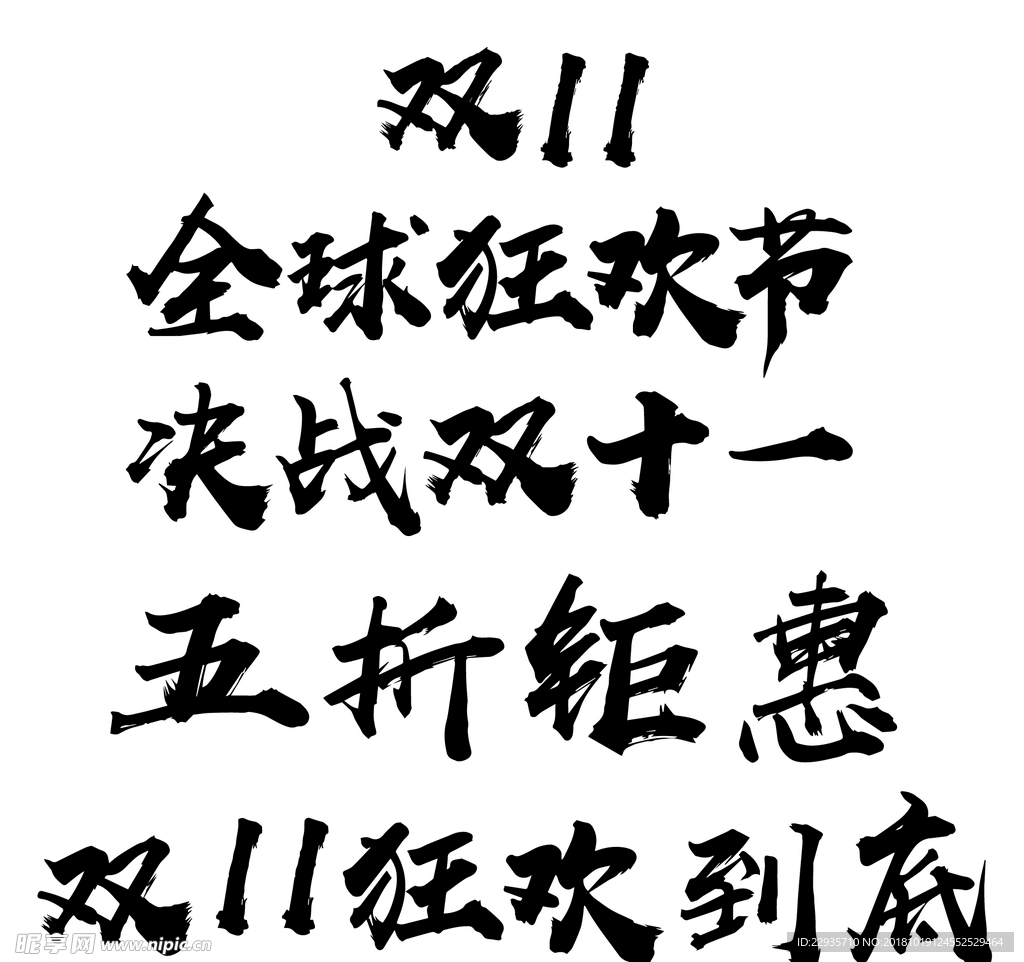 双11
全球狂欢节
决战双十一
五折钜惠
双11狂欢到底
昵享网 www.nipic.cn
ID:22935710 NO:20181019124552529464